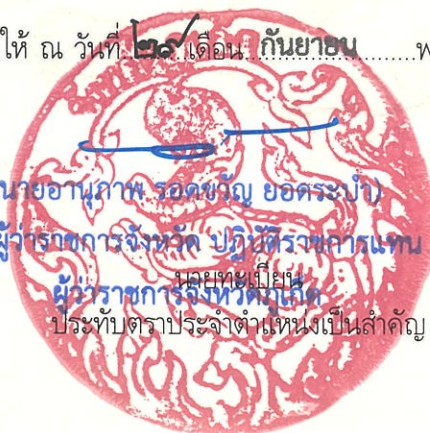 ให้ ณ วันที่ ๒๙ เดือน กันยายน พ
นายอานุภาพ รอดขวัญ ยอดระบำ)
ผู้ว่าราชการจังหวัด ปฏิบัติราชการแทน
นายทะเบียน
ผู้ว่าราชการจังหวัดภูเก็ต
ประทับตราประจำตำแหน่งเป็นสำคัญ